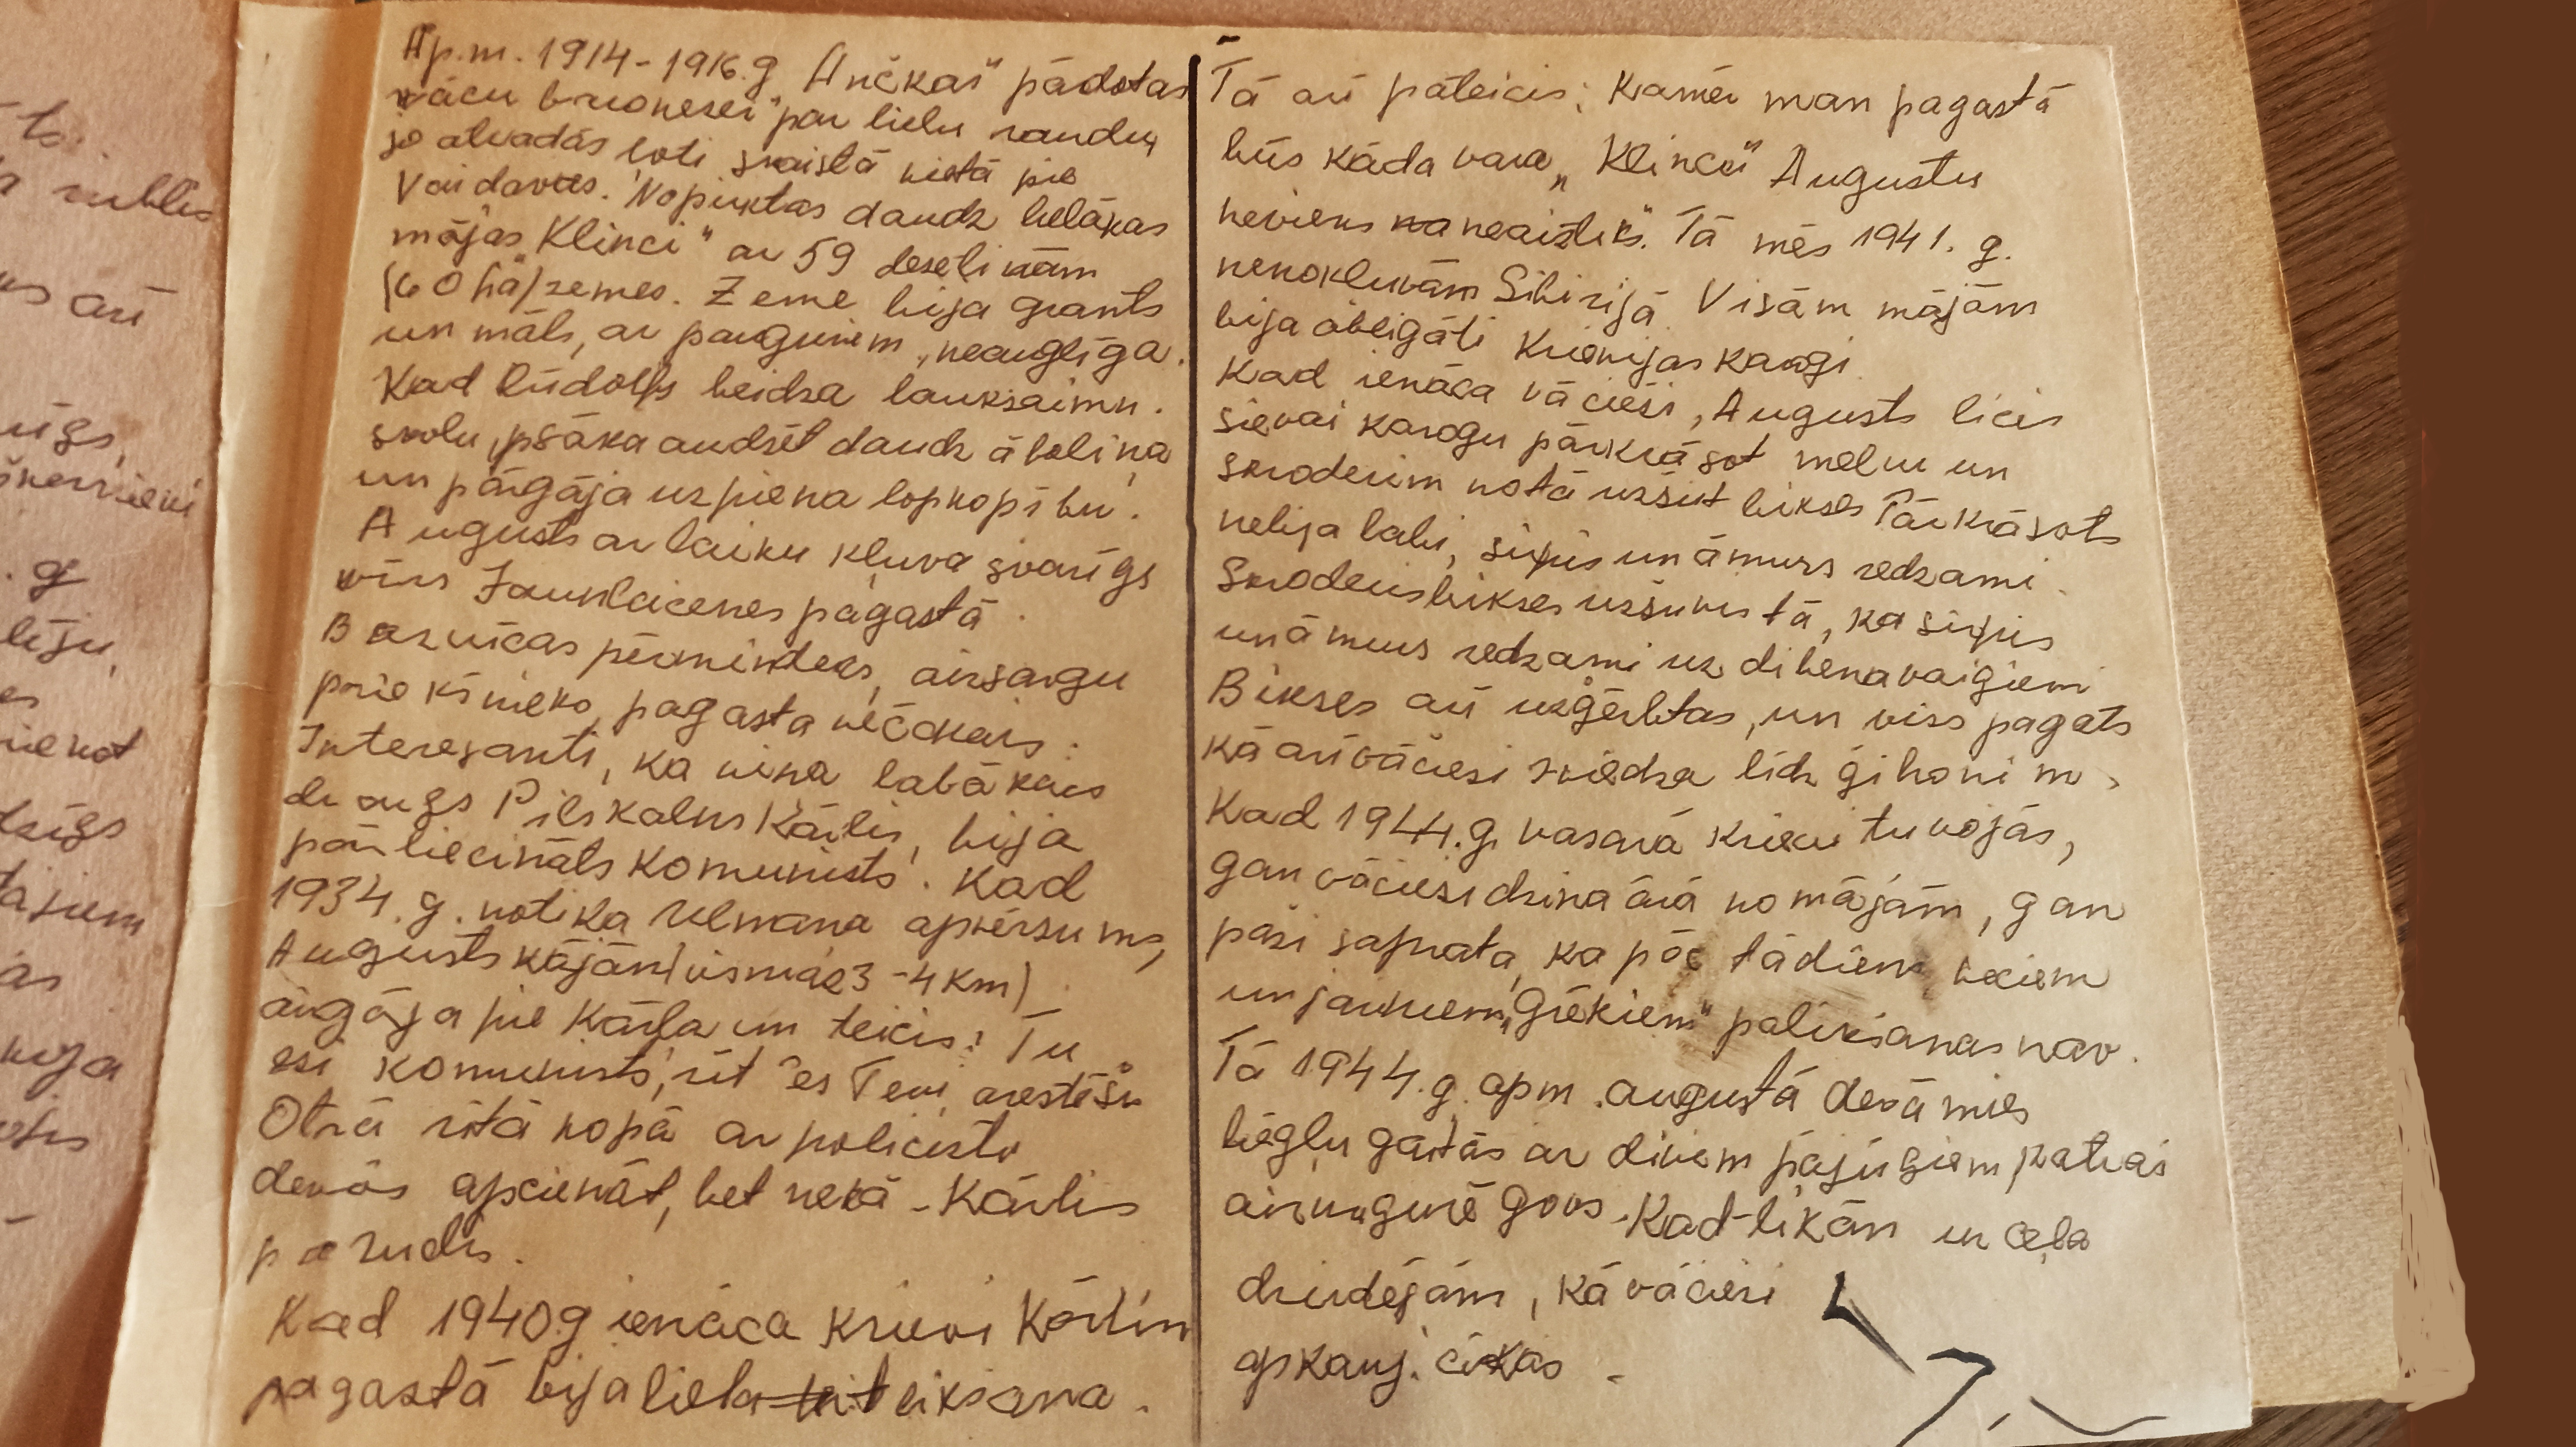 Ap.m. 1914-1916.g. „Ančkas" pārdotas
vācu baronesei par lielu naudu,
jo atradās ļoti skaistā vietā pie
Vaidavas. Nopirktas daudz lielākas
mājas „Klinci" ar 59 desetinām
(60 ha) zemes. Zeme bija grants
un māls, ar pauguriem, neauglīga.
Kad Rūdolfs beidza lauksaimn.
skolu, psāka audzēt daudz āboliņa
un pārgāja uz piena lopkopību.
Augusts ar laiku kļuva svarīgs
vīrs Jaunlaicenes pagastā.
Baznīcas pērminderis, aizsargu
priekšnieks, pagasta večākais.
Interesanti, ka viņa labākais
draugs Pilskalns Kārlis, bija
pārliecināts komunists. Kad
1934.g. notika Ulmaņa apvērsums,
Augusts kājām (vismaz 3-4 km)
aizgāja pie Kārļa un teicis: Tu
esi komunists, rīt es Tevi arestēšu
Otrā rītā kopā ar policistu
devās apcienāt, bet nekā - Kārlis
pazudis.
Kad 1940g ienāca krievi Kārlim
pagastā bija liela teikšana.
Tā arī pateicis: Kamēr man pagastā
būs kāda vara „Klincu" Augustu
neviens neaiztiks". Tā mēs 1941. g.
nenokļuvām Sibīrijā. Visām mājām
bija obligāti Krievijas karogi.
Kad ienāca vācieši, Augusts licis
sievai karogu pārkrāsot melnu un
skroderim notā uzšūt bikses Pārkrāsots
nebija labi, sirpis un āmurs redzami.
Skroderis bikses uzšuvis tā, ka sirpis
un āmurs redzami uz dibena vaigiem
Bikses arī uzģērbtas, un viss pagats
kā arī vācieši zviedza līdz ģībonim.
Kad 1944.g. vasarā krievi tuvojās,
gan vācieši dzina ārā no mājām, gan
paši saprata, ka pēc tādiem veciem
un jauniem „Grēkiem" palikšanas nav.
Tā 1944.g. apm. augustā devāmies
bēgļu gaitās ar diviem pajūgiem, katrai
aizmugurē govs. Kad tikām uz ceļa
dzirdējām, kā vācieši
apkauj. cūkas.